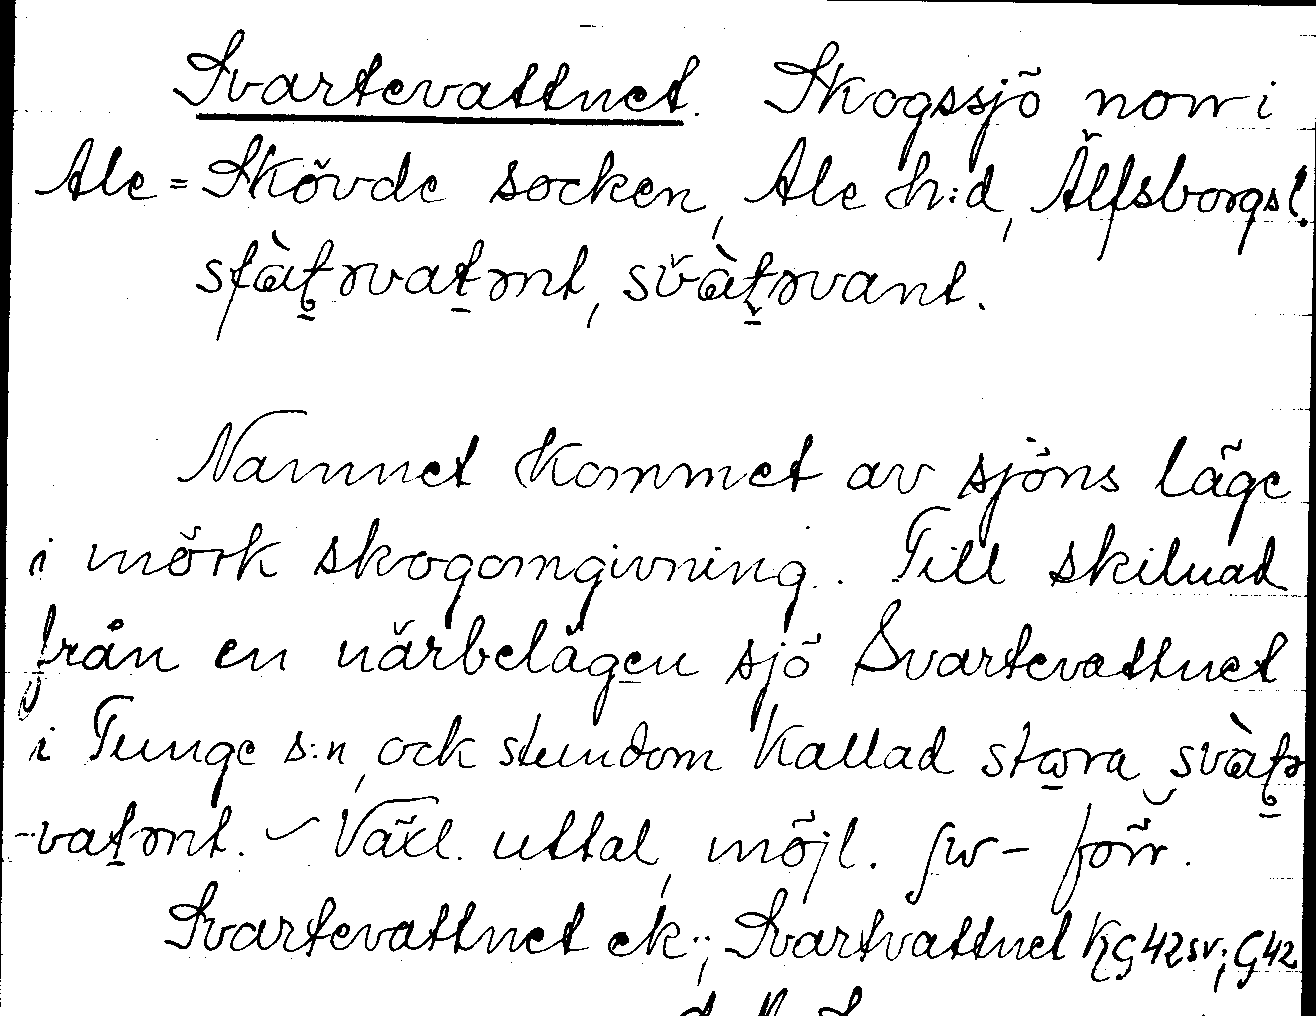 Svartevattnet. Skogssjö norr i
Ale=Skövde socken, Ale h:d, Älfsborgs l.
Namnet kommet av sjöns läge
i mörk skogomgivning. Till skilnad
från en närbelägen sjö Svartevattnet
i Tunge s:n, ock stundom kallad stora
Växl. uttal, möjl. förr.
Svartevattnet ek.; Svartvattnet KG42sv; G42